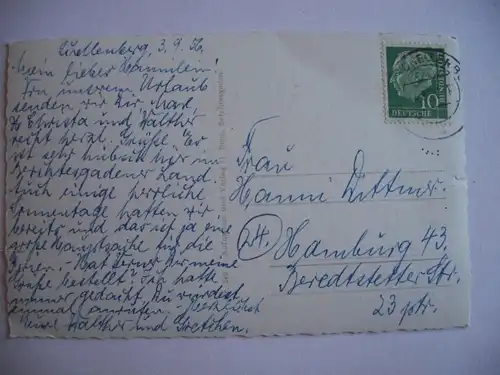 3. 9. 56.
Mein liebes Hannilein!
Von unserem Urlaub
senden wir Dir, Karl
Christa und Walther
recht herzl. Grüße. Es
ist sehr hübsch hier im
Berchtesgadener Land.
Auch einige herrliche
Sonnentage hatten wir
bereits und das ist ja eine
große Hauptsache für die
Ferien. Hat Werner Dir meine
Grüße bestellt? Ich hatte
immer gedacht, Du würdest
einmal anrufen. Herzlichst
Walther und Gretchen.
10
DEUTSCHE
BUNDESPOST
Frau
Hanni Dittmer
24
Hamburg 43,
Beredtstetter Str.
23 ptr.